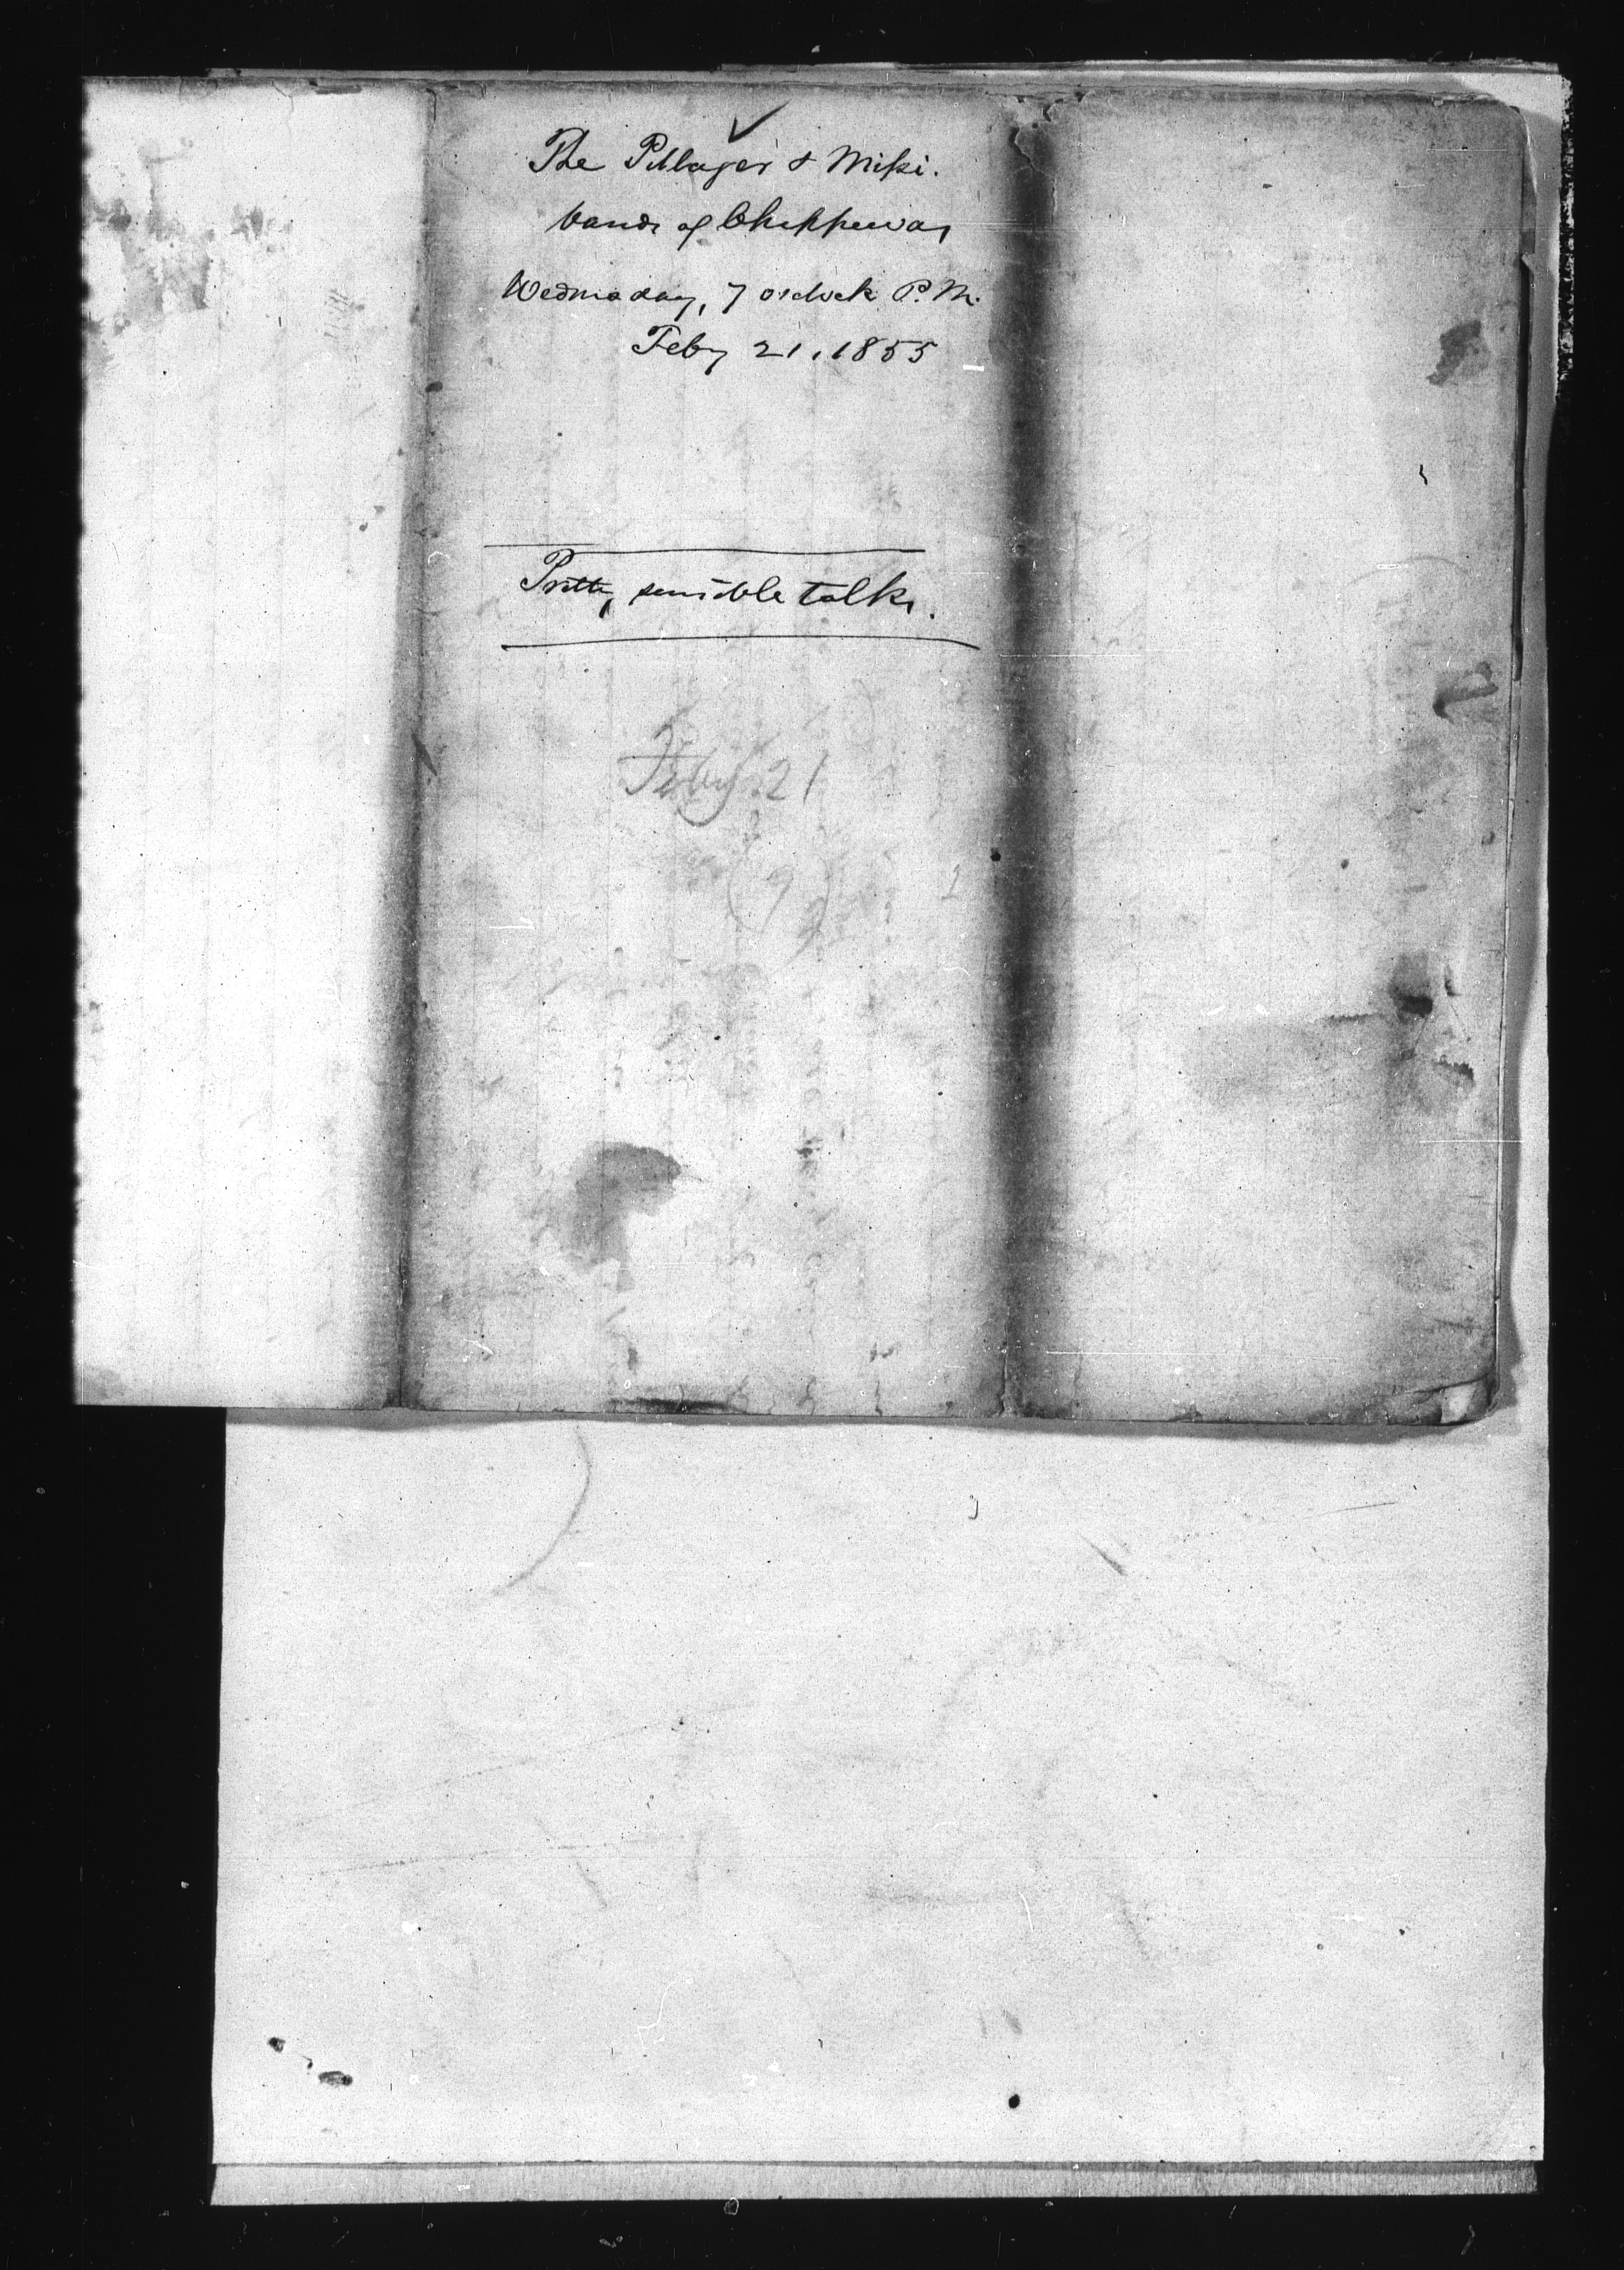 The Pillager & Missi.
bands of Chippewas
Wednesday, 7 o'clock P.M.
Feby 21, 1855
Pretty sensible talks.
Feby 21
(9)